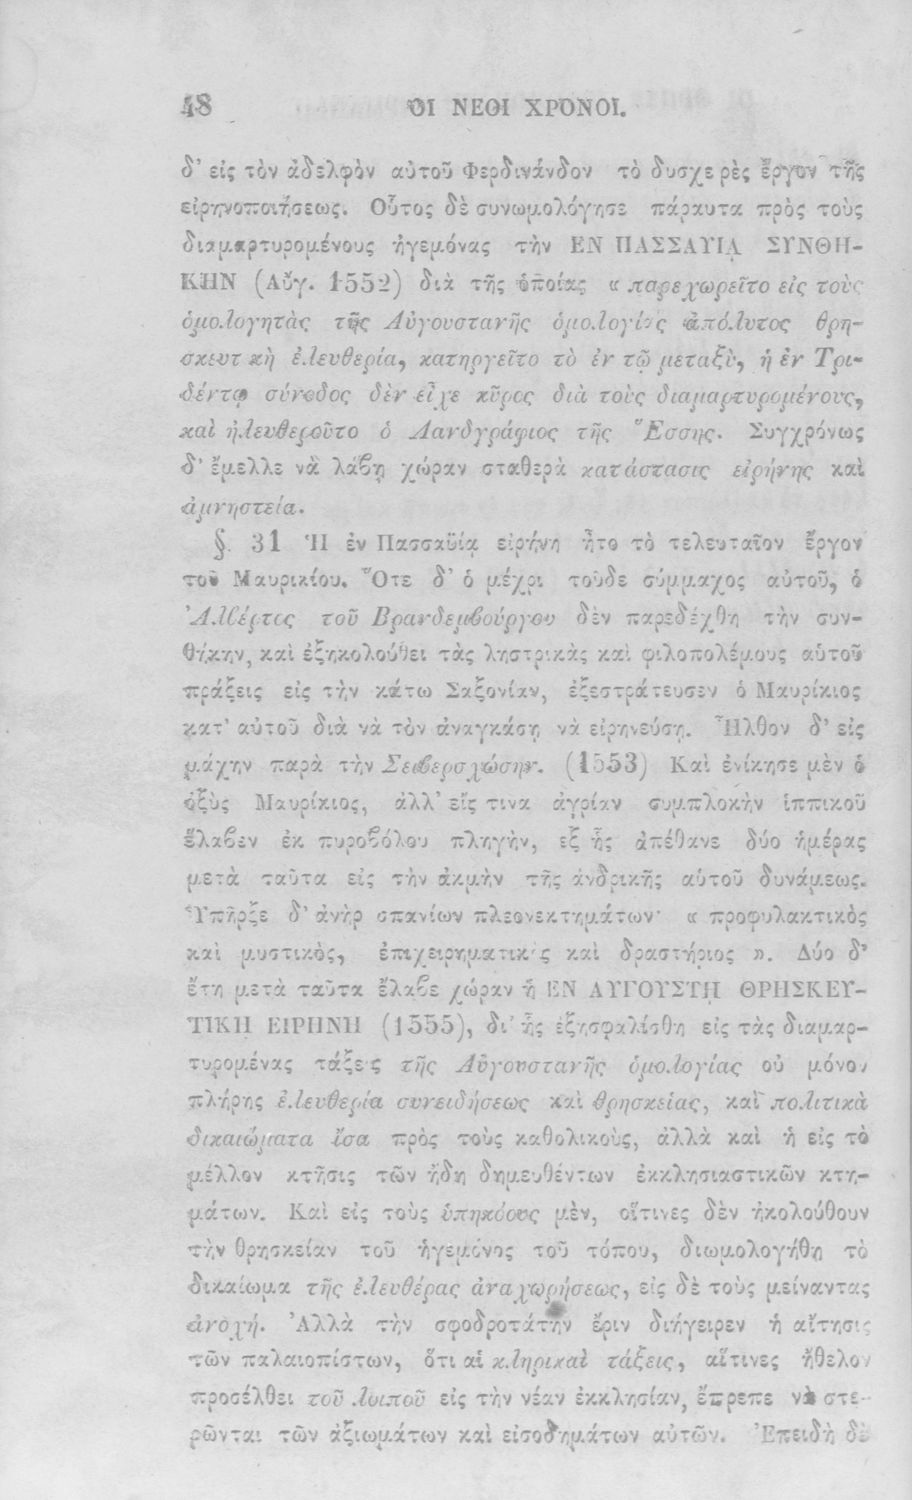 48 ΟΙ ΝΕΟΙ ΧΡΟΝΟΙ.
δ' εἰς τὸν ἀδελφὸν αὐτοῦ Φερδινάνδον τὸ δυσχερὲς ἔργον τῆς
εἰρηνοποιήσεως. Οὗτος δὲ συνωμολόγησε πάραυτα πρὸς τοὺς
διαμαρτυρομένους ἡγεμόνας τὴν ΕΝ ΠΑΣΣΑΥΙᾼ ΣΥΝΘΗ-
ΚΗΝ (Αὔγ. 1552) διὰ τῆς ὁποίας « παρεχωρεῖτο εἰς τοὺς
ὁμολογητὰς τῆς Αὐγουστανῆς ὁμολογίας ἀπόλυτος θρη-
σκευτικὴ ἐλευθερία, κατηργεῖτο τὸ ἐν τῷ μεταξὺ, ἡ ἐν Τρι-
δέντῳ σύνοδος δὲν εἶχε κῦρος διὰ τοὺς διαμαρτυρομένους,
καὶ ἠλευθεροῦτο ὁ Λανδγράφιος τῆς Ἕσσης. Συγχρόνως
δ' ἔμελλε νὰ λάβῃ χώραν σταθερὰ κατάστασις εἰρήνης καὶ
ἀμνηστεία.
§. 31 Ἡ ἐν Πασσαϋίᾳ εἰρήνη ἦτο τὸ τελευταῖον ἔργον
τοῦ Μαυρικίου. Ὅτε δ' ὁ μέχρι τοῦδε σύμμαχος αὐτοῦ, ὁ
Ἀλβέρτος τοῦ Βρανδεμβούργου δὲν παρεδέχθη τὴν συν-
θήκην, καὶ ἐξηκολούθει τὰς λῃστρικὰς καὶ φιλοπολέμους αὑτοῦ
πράξεις εἰς τὴν κάτω Σαξονίαν, ἐξεστράτευσεν ὁ Μαυρίκιος
κατ' αὐτοῦ διὰ νὰ τὸν ἀναγκάσῃ νὰ εἰρηνεύσῃ. Ἦλθον δ' εἰς
μάχην παρὰ τὴν Σειβερσχώσην. (1553) Καὶ ἐνίκησε μὲν ὁ
ὀξὺς Μαυρίκιος, ἀλλ' εἴς τινα ἀγρίαν συμπλοκὴν ἱππικοῦ
ἔλαβεν ἐκ πυροβόλου πληγὴν, ἐξ ἧς ἀπέθανε δύο ἡμέρας
μετὰ ταῦτα εἰς τὴν ἀκμὴν τῆς ἀνδρικῆς αὑτοῦ δυνάμεως.
Ὑπῆρξε δ' ἀνὴρ σπανίων πλεονεκτημάτων· « προφυλακτικὸς
καὶ μυστικὸς, ἐπιχειρηματικὸς καὶ δραστήριος ». Δύο δ'
ἔτη μετὰ ταῦτα ἔλαβε χώραν ἡ ΕΝ ΑΥΓΟΥΣΤῌ ΘΡΗΣΚΕΥ-
ΤΙΚΗ ΕΙΡΗΝΗ (1555), δι' ἧς ἐξησφαλίσθη εἰς τὰς διαμαρ-
τυρομένας τάξεις τῆς Αὐγουστανῆς ὁμολογίας οὐ μόνον
πλήρης ἐλευθερία συνειδήσεως καὶ θρησκείας, καὶ πολιτικὰ
δικαιώματα ἴσα πρὸς τοὺς καθολικοὺς, ἀλλὰ καὶ ἡ εἰς τὸ
μέλλον κτῆσις τῶν ἤδη δημευθέντων ἐκκλησιαστικῶν κτη-
μάτων. Καὶ εἰς τοὺς ὑπηκόους μὲν, οἵτινες δὲν ἠκολούθουν
τὴν θρησκείαν τοῦ ἡγεμόνος τοῦ τόπου, διωμολογήθη τὸ
δικαίωμα τῆς ἐλευθέρας ἀναχωρήσεως, εἰς δὲ τοὺς μείναντας
ἀνοχή. Ἀλλὰ τὴν σφοδροτάτην ἔριν διήγειρεν ἡ αἴτησις
τῶν παλαιοπίστων, ὅτι αἱ κληρικαὶ τάξεις, αἵτινες ἤθελον
προσέλθει τοῦ λοιποῦ εἰς τὴν νέαν ἐκκλησίαν, ἔπρεπε νὰ στε-
ρῶνται τῶν ἀξιωμάτων καὶ εἰσοδημάτων αὐτῶν. Ἐπειδὴ δὲ